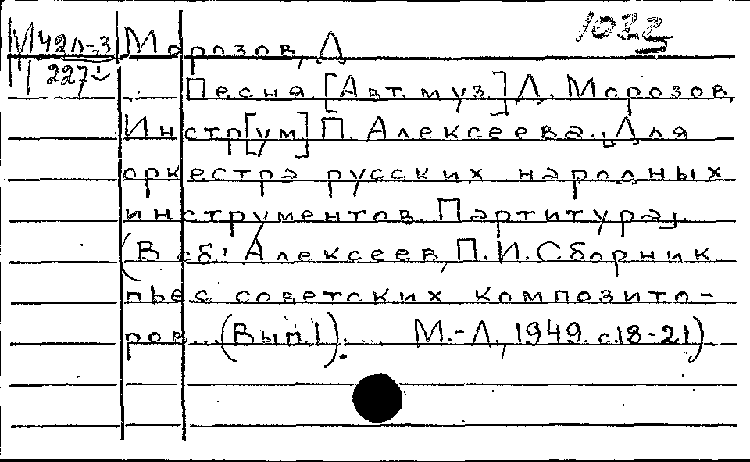 1022
М 42л-3 Морозов, Л
227
Песня. [Авт. муз.] Л. Морозов,
Инстр[ум] П. Алексеева. [Для
оркестра русских народных
инструментов. Партитура].
(В сб: Алексеев, П.И. Сборник
пьес советских композито-
ров. (Вып. I). М.-Л., 1949. с. 18-21)